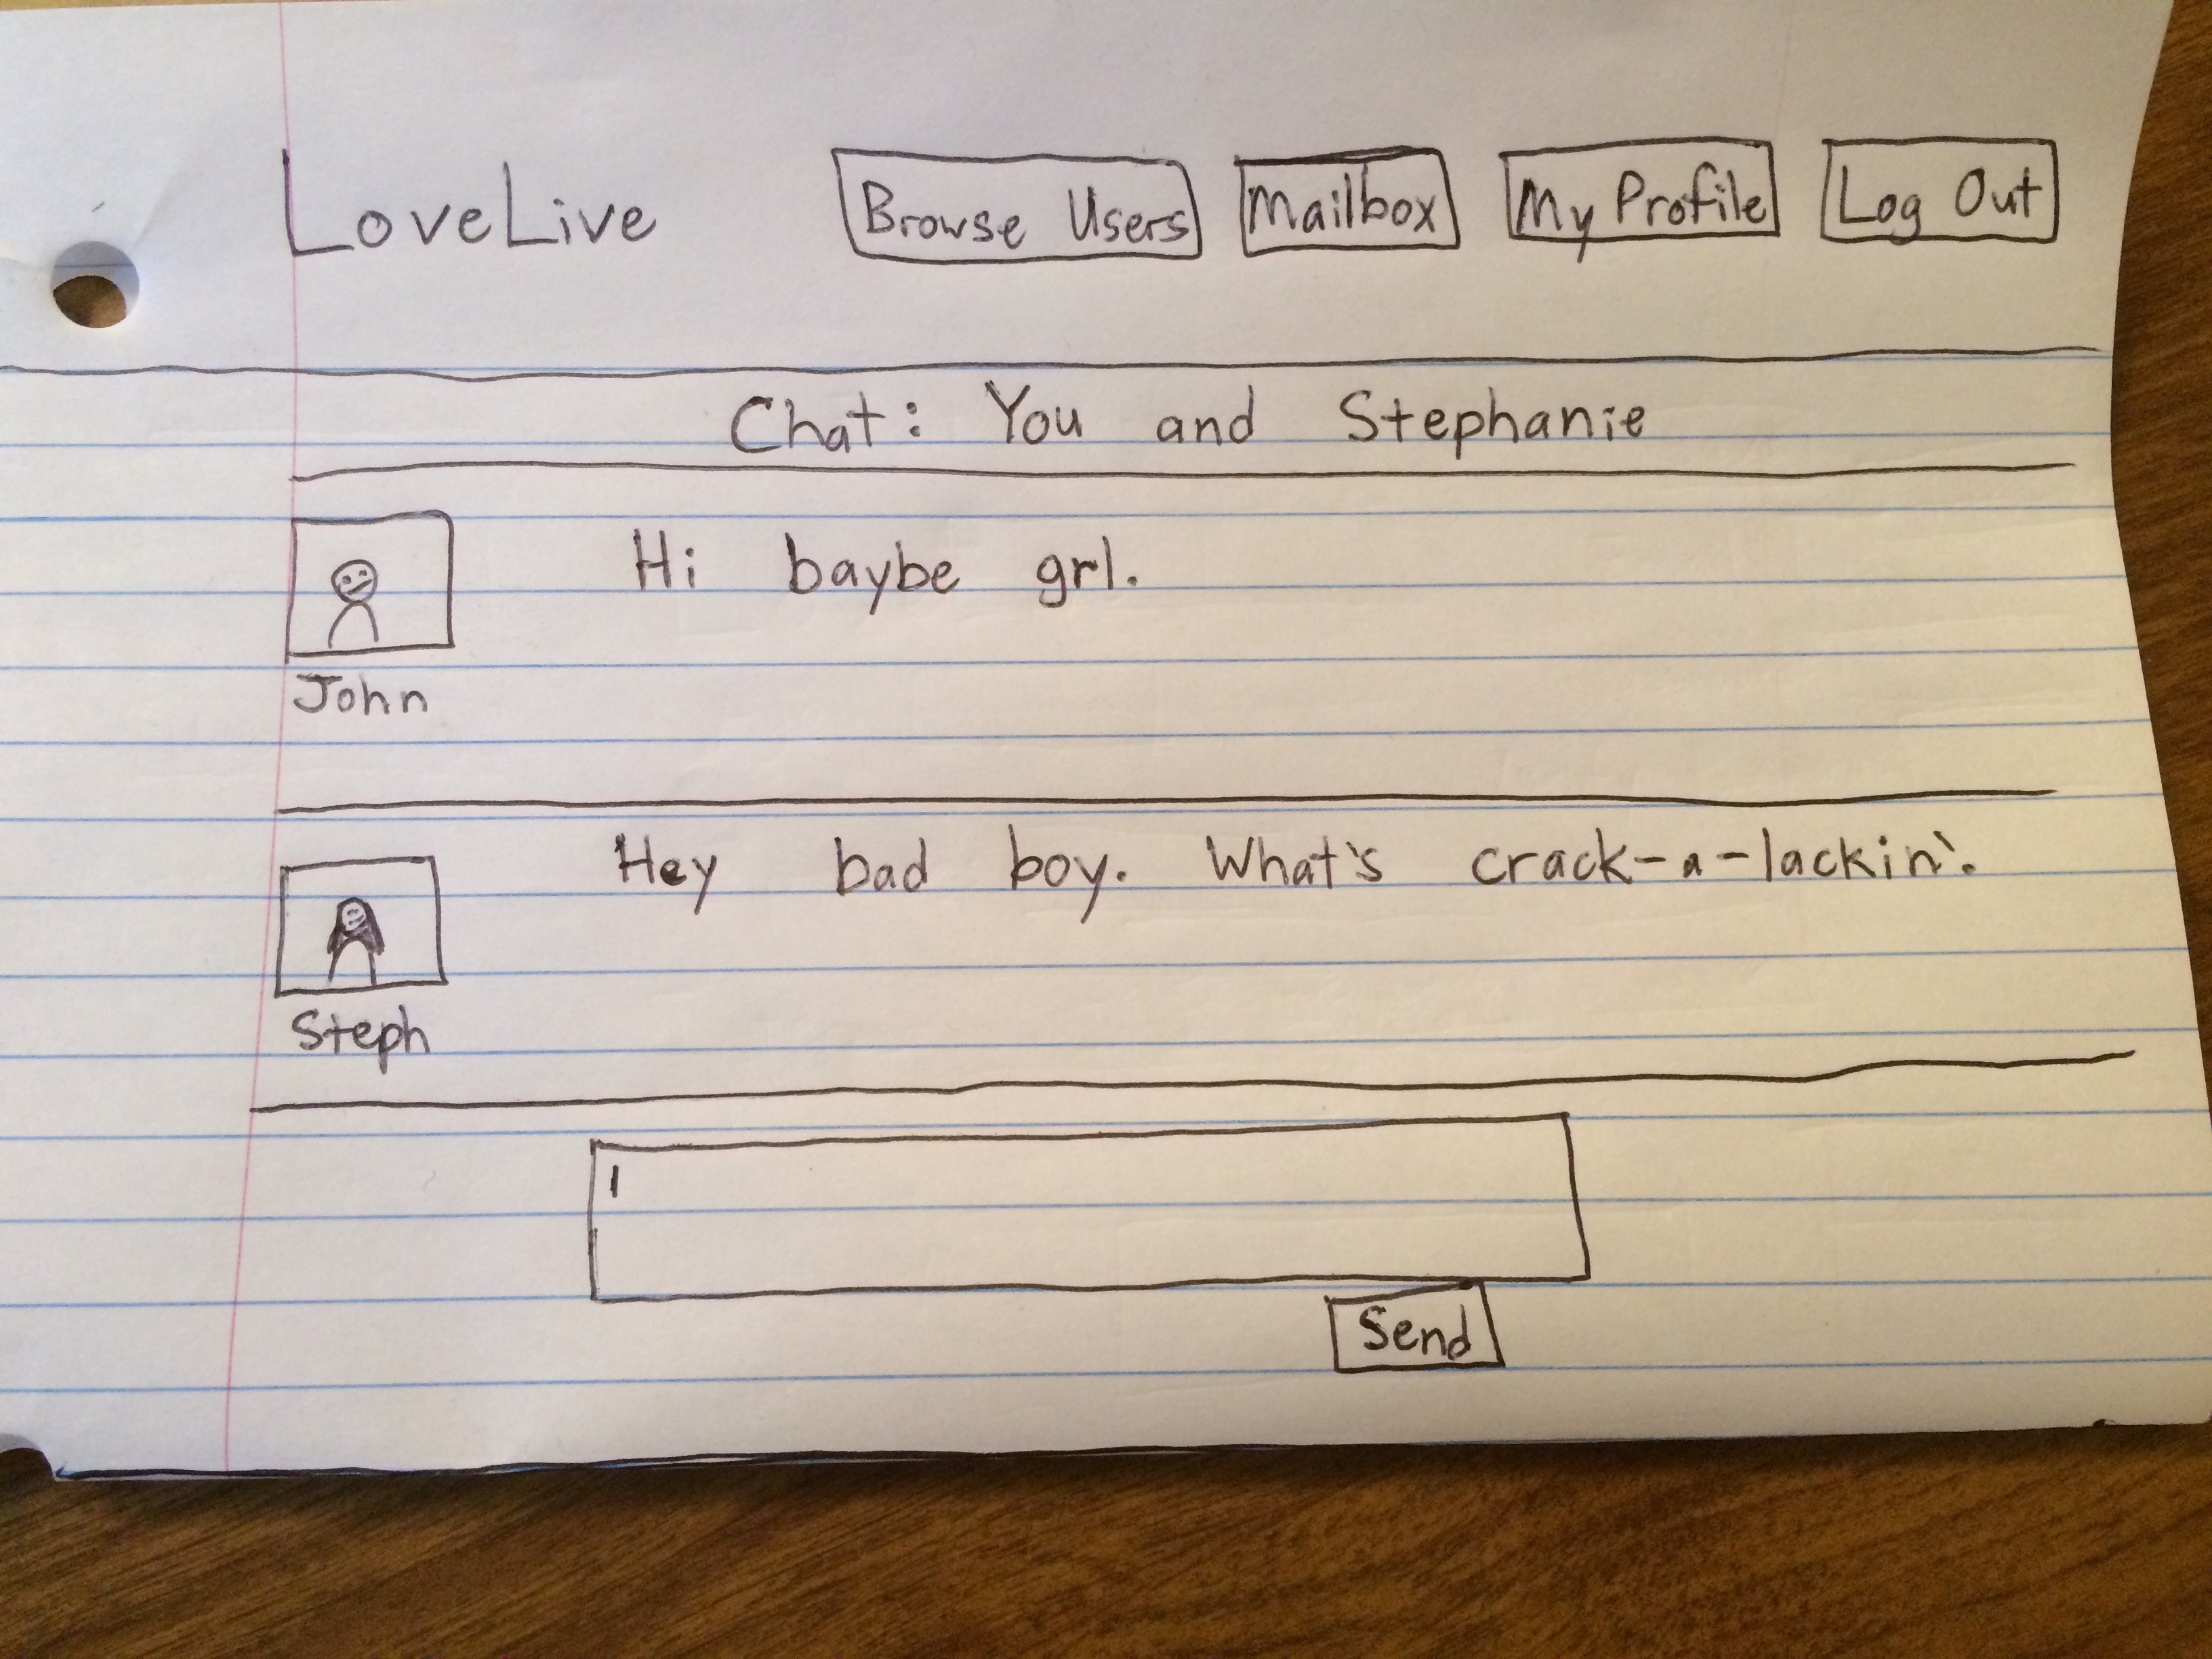 LoveLive Browse Users Mailbox My Profile Log Out
Chat: You and Stephanie
Hi baybe grl.
John
Hey bad boy. What's crack-a-lackin'.
Steph
Send